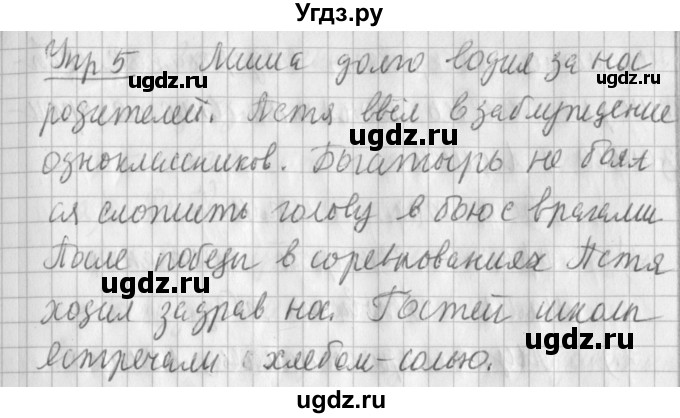 Угдз.ру
Упр 5 Миша долго водил за нос
ugdz.ru
ugdz.ru
родителей. Петя ввёл в заблуждение
ugdz.ru
одноклассников. Богатырь не боял
ся сложить голову в бою с врагами
ugdz.ru
ugdz.ru
После победы в соревнованиях Петя
ugdz.ru
ходил задрав нос. Гостей школы
ugdz.ru
ugdz.ru
встречали с хлебом-солью.
Угдз.ру